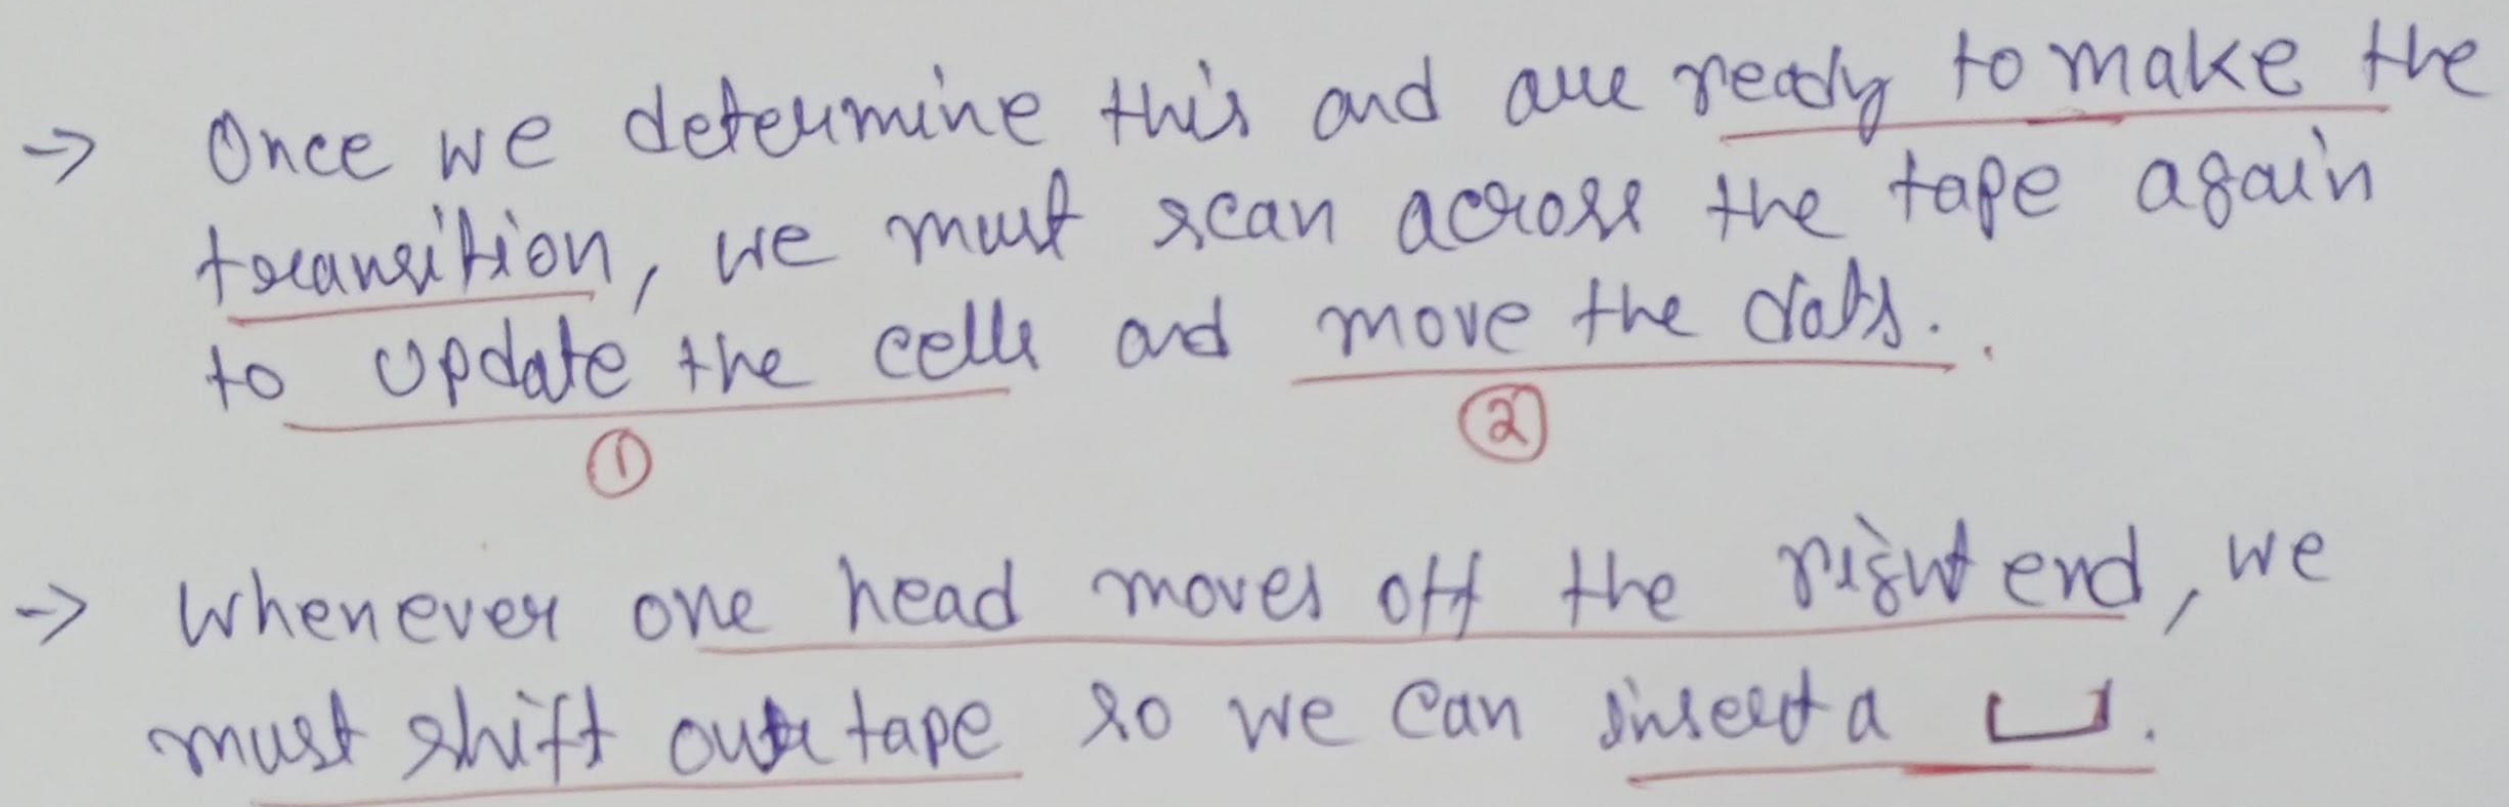 → Once we determine this and are ready to make the
transition, we must scan across the tape again
to update the cells and move the dots.
① ②
→ Whenever one head moves off the right end, we
must shift our tape so we can insert a ⊔.